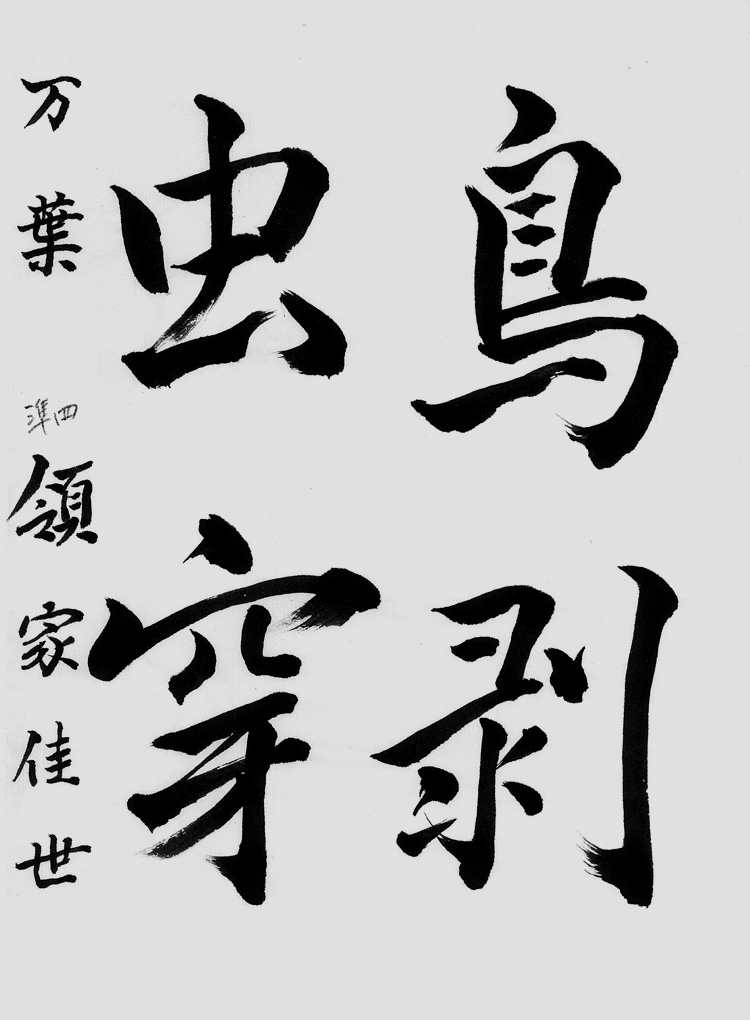 鳥剥
虫穿
万葉 準四 領家佳世